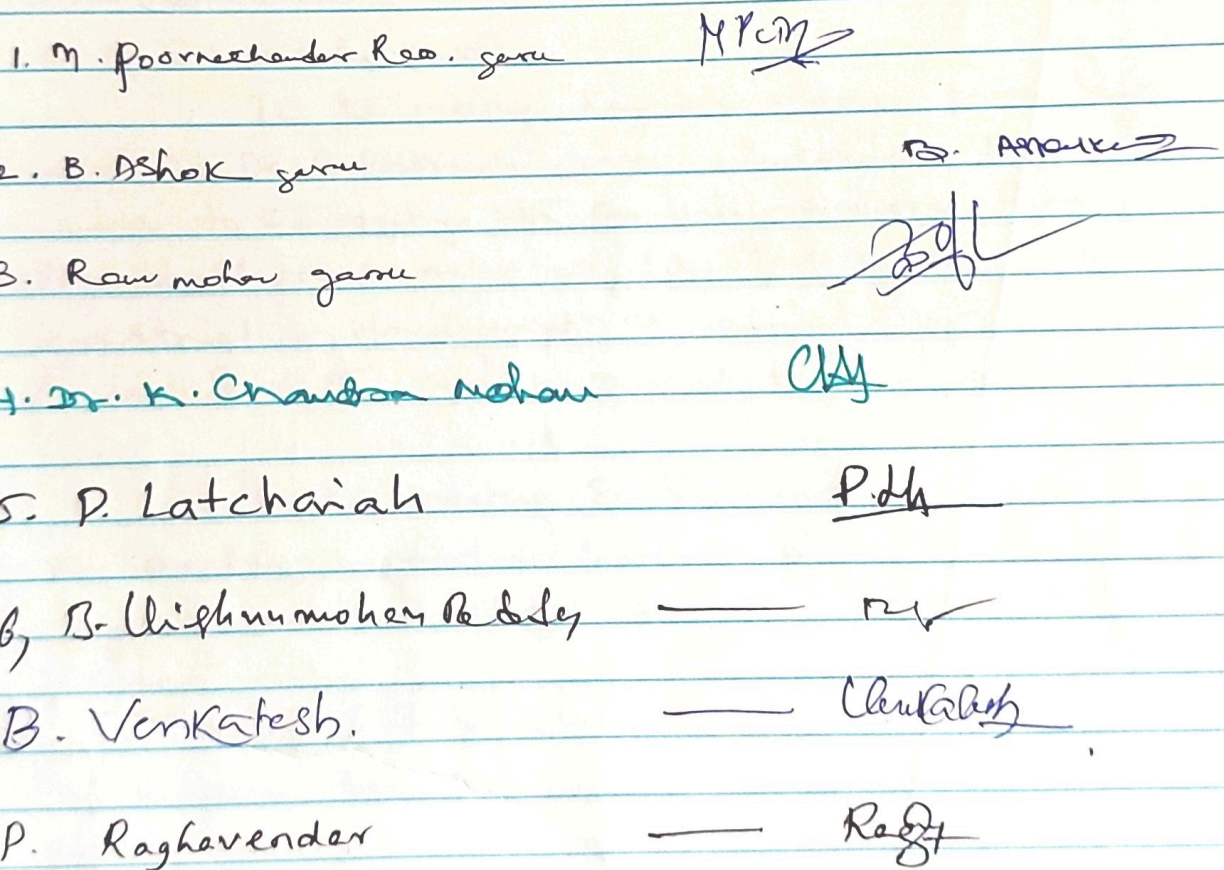 1. M. Poornachander Rao. garu MPCR
2. B. Ashok garu B. Ashok
3. Ram mohan garu
4. Dr. K. Chandra Mohan
5. P. Latchaiah P.Lh
6, B. Vishnumohan Reddy —
B. Venkatesh. — Venkatesh
P. Raghavender —